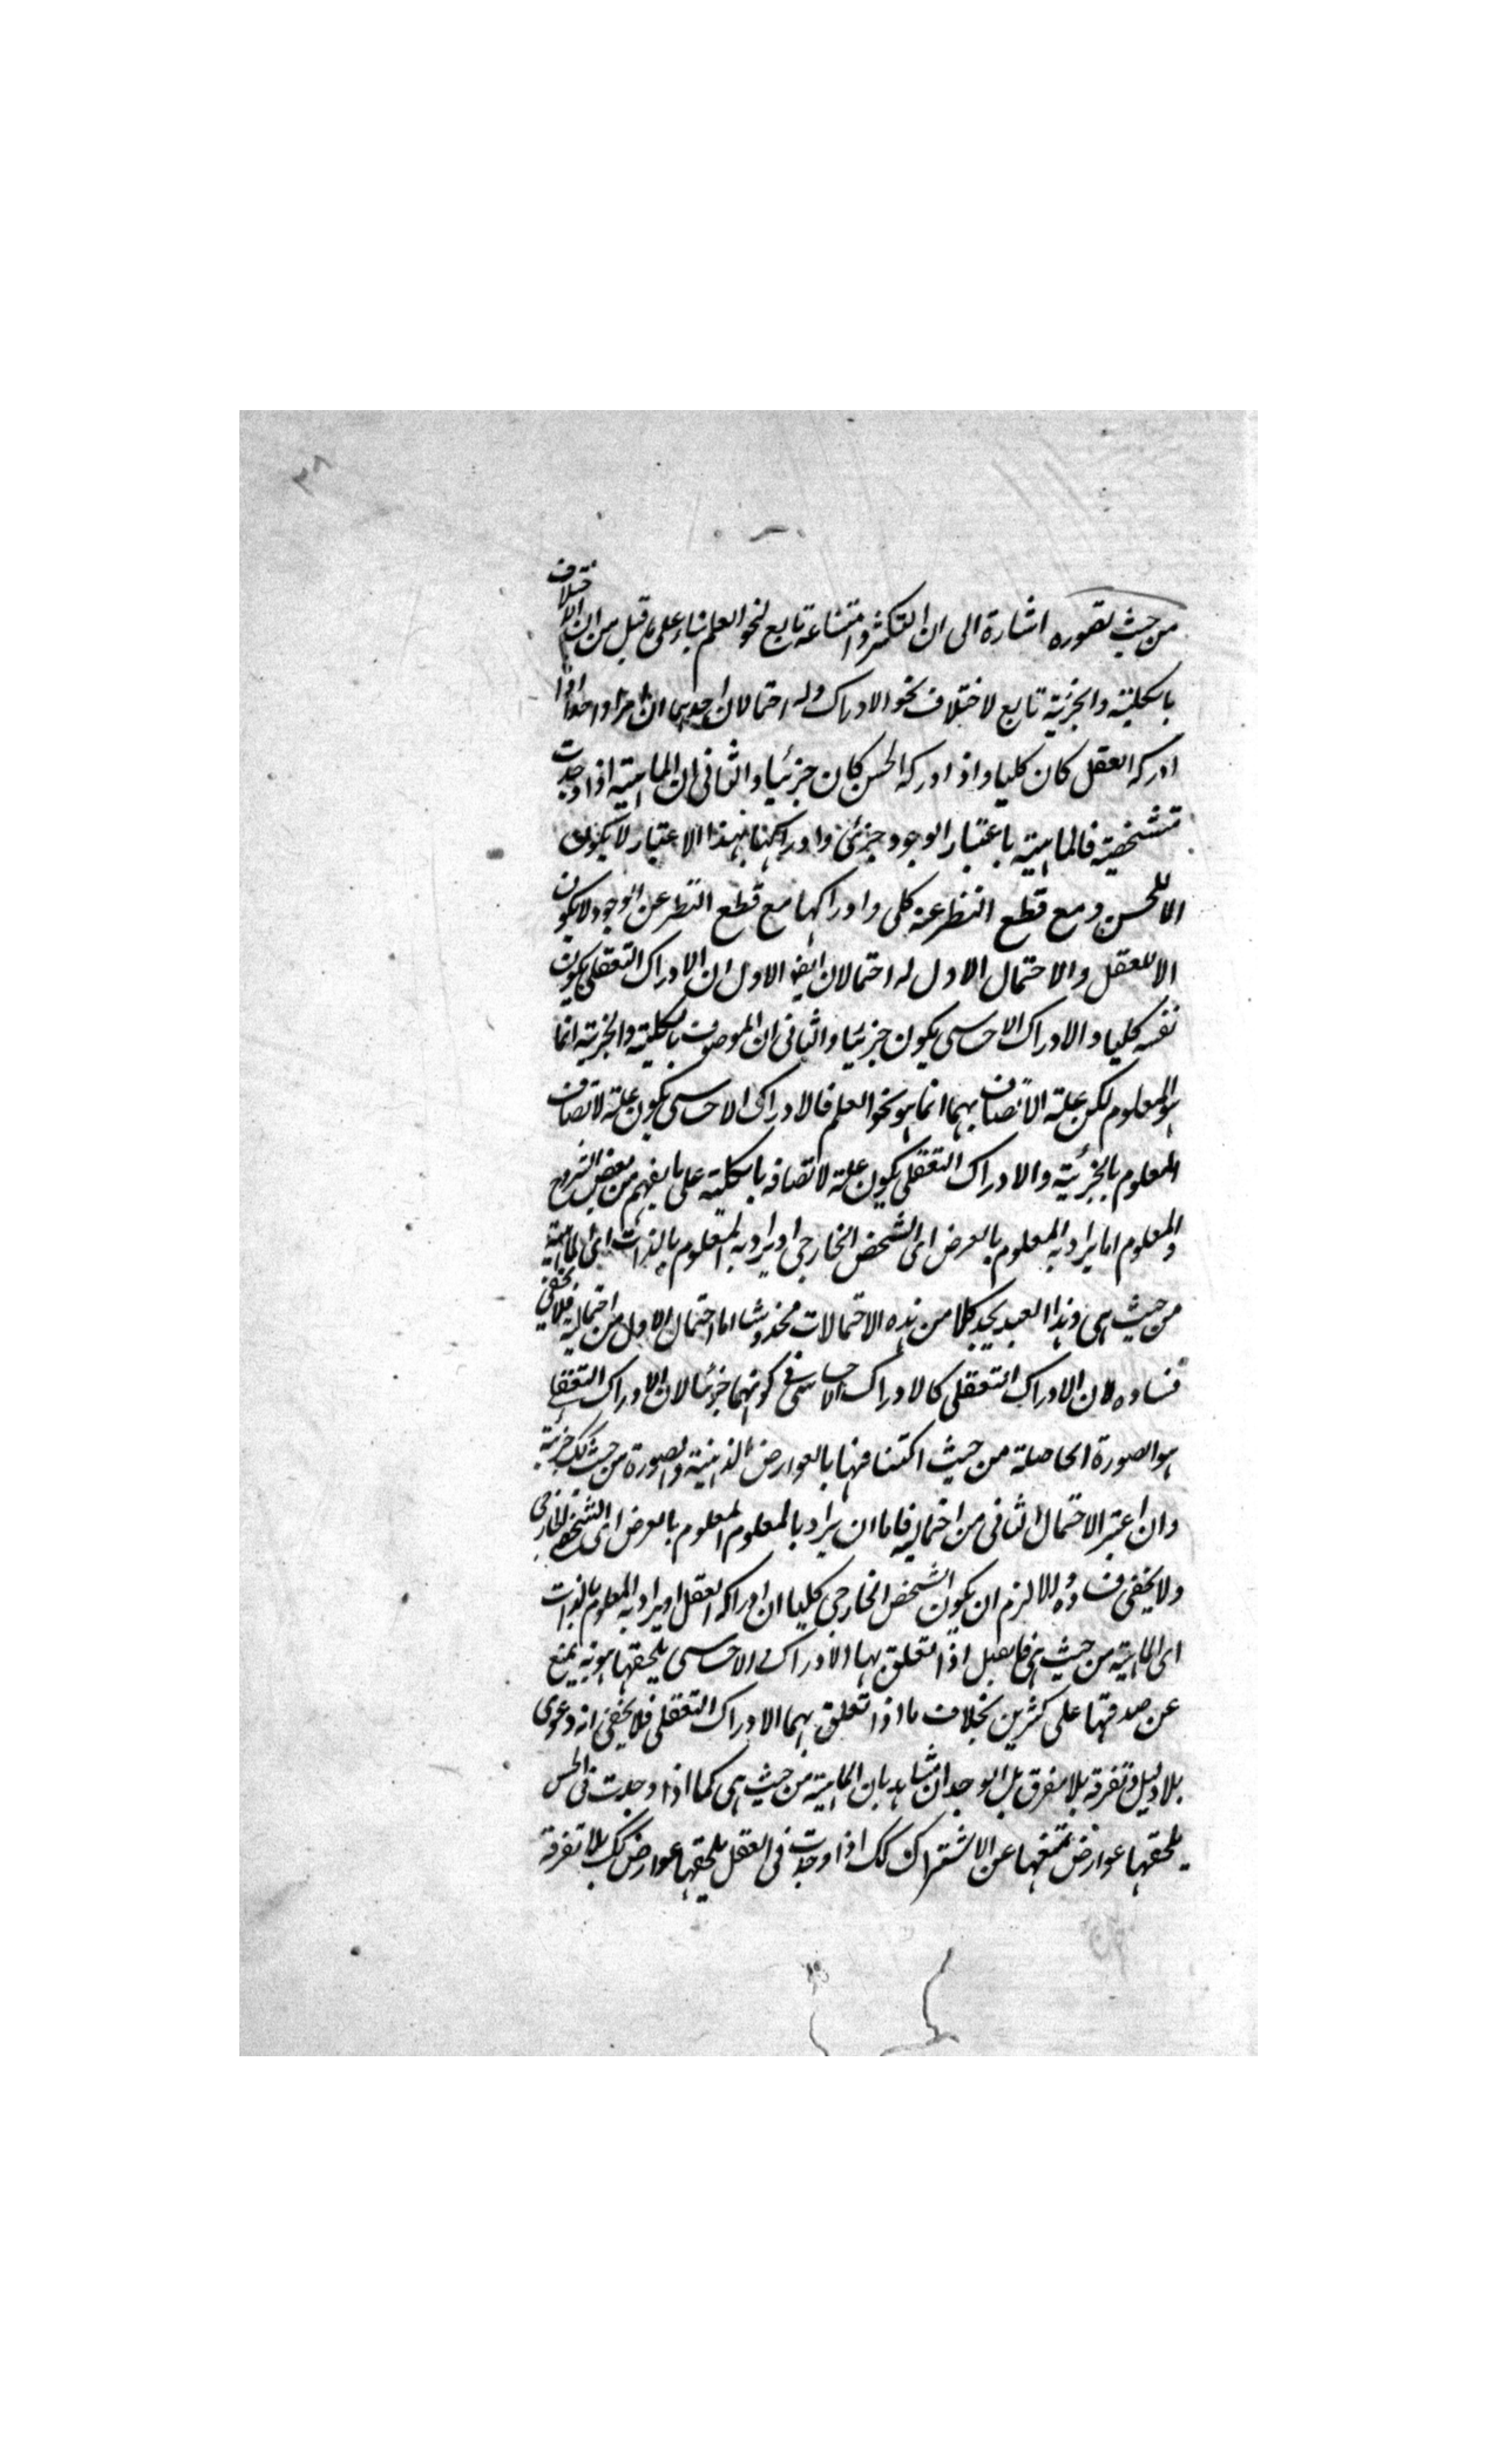 ٣٨
من حيث تصوره اشارة الى ان التكثر وامتناعه تابع لنحو العلم بناء على ما قيل من ان الاختلاف
بالكلية والجزئية تابع لاختلاف نحو الادراك وله احتمالان احدهما ان امرا واحدا اذا
ادركه العقل كان كليا واذا ادركه الحس كان جزئيا والثانى ان الماهية اذا وجدت
متشخصة فالماهية باعتبار الوجود جزئى وادراكها بهذا الاعتبار لا يكون
الا للحس ومع قطع النظر عنه كلى وادراكها مع قطع النظر عن الوجود لا يكون
الا للعقل والاحتمال الاول له احتمالان ايضا الاول ان الادراك التعقلى يكون
نفسه كليا والادراك الاحساسى يكون جزئيا والثانى ان الموصوف بالكلية والجزئية انما
هو المعلوم لكن علة الاتصاف بهما انما هو نحو العلم فالادراك الاحساسى يكون علة لاتصاف
المعلوم بالجزئية والادراك التعقلى يكون علة لاتصافه بالكلية على ما يفهم من بعض الشروح
والمعلوم اما يراد به المعلوم بالعرض اى الشخص الخارجى او يراد به المعلوم بالذات اى الماهية
من حيث هى وهذا العبد يجد كلا من هذه الاحتمالات مخدوشا اما احتمال الاول من احتماليه فلا يخفى
فساده لان الادراك التعقلى كالادراك الاحساسى فى كونهما جزئيا لان الادراك التعقلى
هو الصورة الحاصلة من حيث اكتنافها بالعوارض الذهنية والصورة من حيث كك جزئية
وان اعتبر الاحتمال الثانى من احتماليه فاما ان يراد بالمعلوم المعلوم بالعرض اى الشخص الخارجى
ولا يخفى فساده والا لزم ان يكون الشخص الخارجى كليا ان ادراكه العقل او يراد به المعلوم بالذات
اى الماهية من حيث هى فما يقبل اذا تعلق بها الادراك الاحساسى يلحقها هوية يمنع
عن صدقها على كثيرين بخلاف ما اذا تعلق بهما الادراك التعقلى فلا يخفى انه دعوى
بلا دليل وتفرقة بلا مفرق بل الوجدان شاهد بان الماهية من حيث هى كما اذا وجدت فى الحس
يلحقها عوارض تمنعها عن الاشتراك كك اذا وجدت فى العقل يلحقها عوارض كك بلا تفرقة